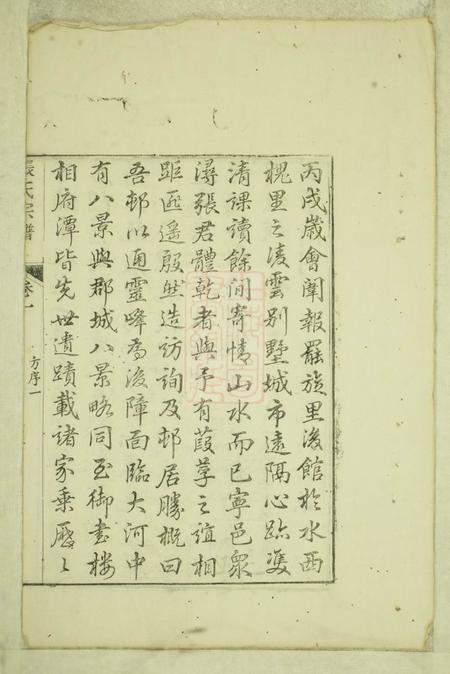 丙戌歲會闈報罷旋里後館於水西
槐里之凌雲別墅城市遠隔心跡雙
清課讀餘閒寄情山水而已寧邑眾
潯張君體乾者與予有葭莩之誼相
距匪遙殷然造訪詢及邨居勝概曰
吾邨以通靈峰為後障面臨大河中
有八景與郡城八景略同至御書樓
相府潭皆先世遺蹟載諸家乘歷〻
張氏宗譜
卷一
方序一